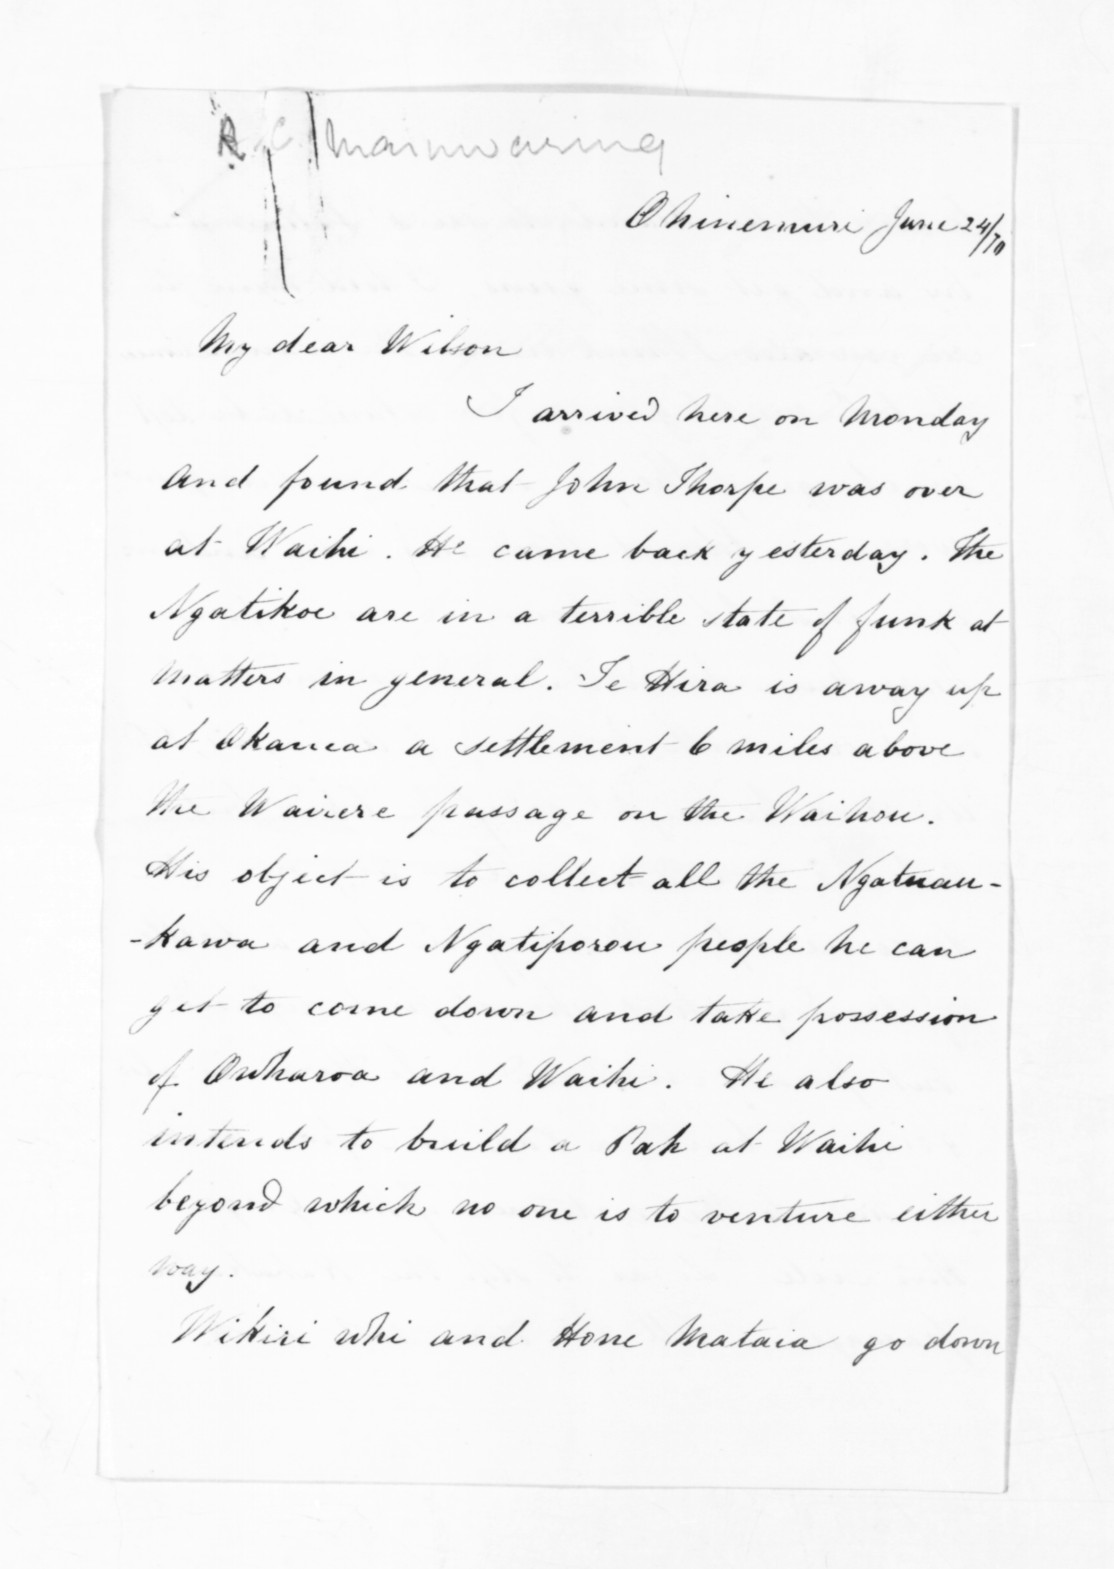 R C Mainwaring
Ohinemuri June 24/70
My dear Wilson
I arrived here on Monday
and found that John Thorpe was over
at Waihi. He came back yesterday. The
Ngatikoe are in a terrible state of funk at
matters in general. Te Hira is away up
at Okauea a settlement 6 miles above
the Wairere passage on the Waihou.
His object is to collect all the Ngatirau-
-kawa and Ngatiporou people he can
get to come down and take possession
of Owharoa and Waihi. He also
intends to build a Pah at Waihi
beyond which no one is to venture either
way.
Wikiri whi and Hone Mataia go down